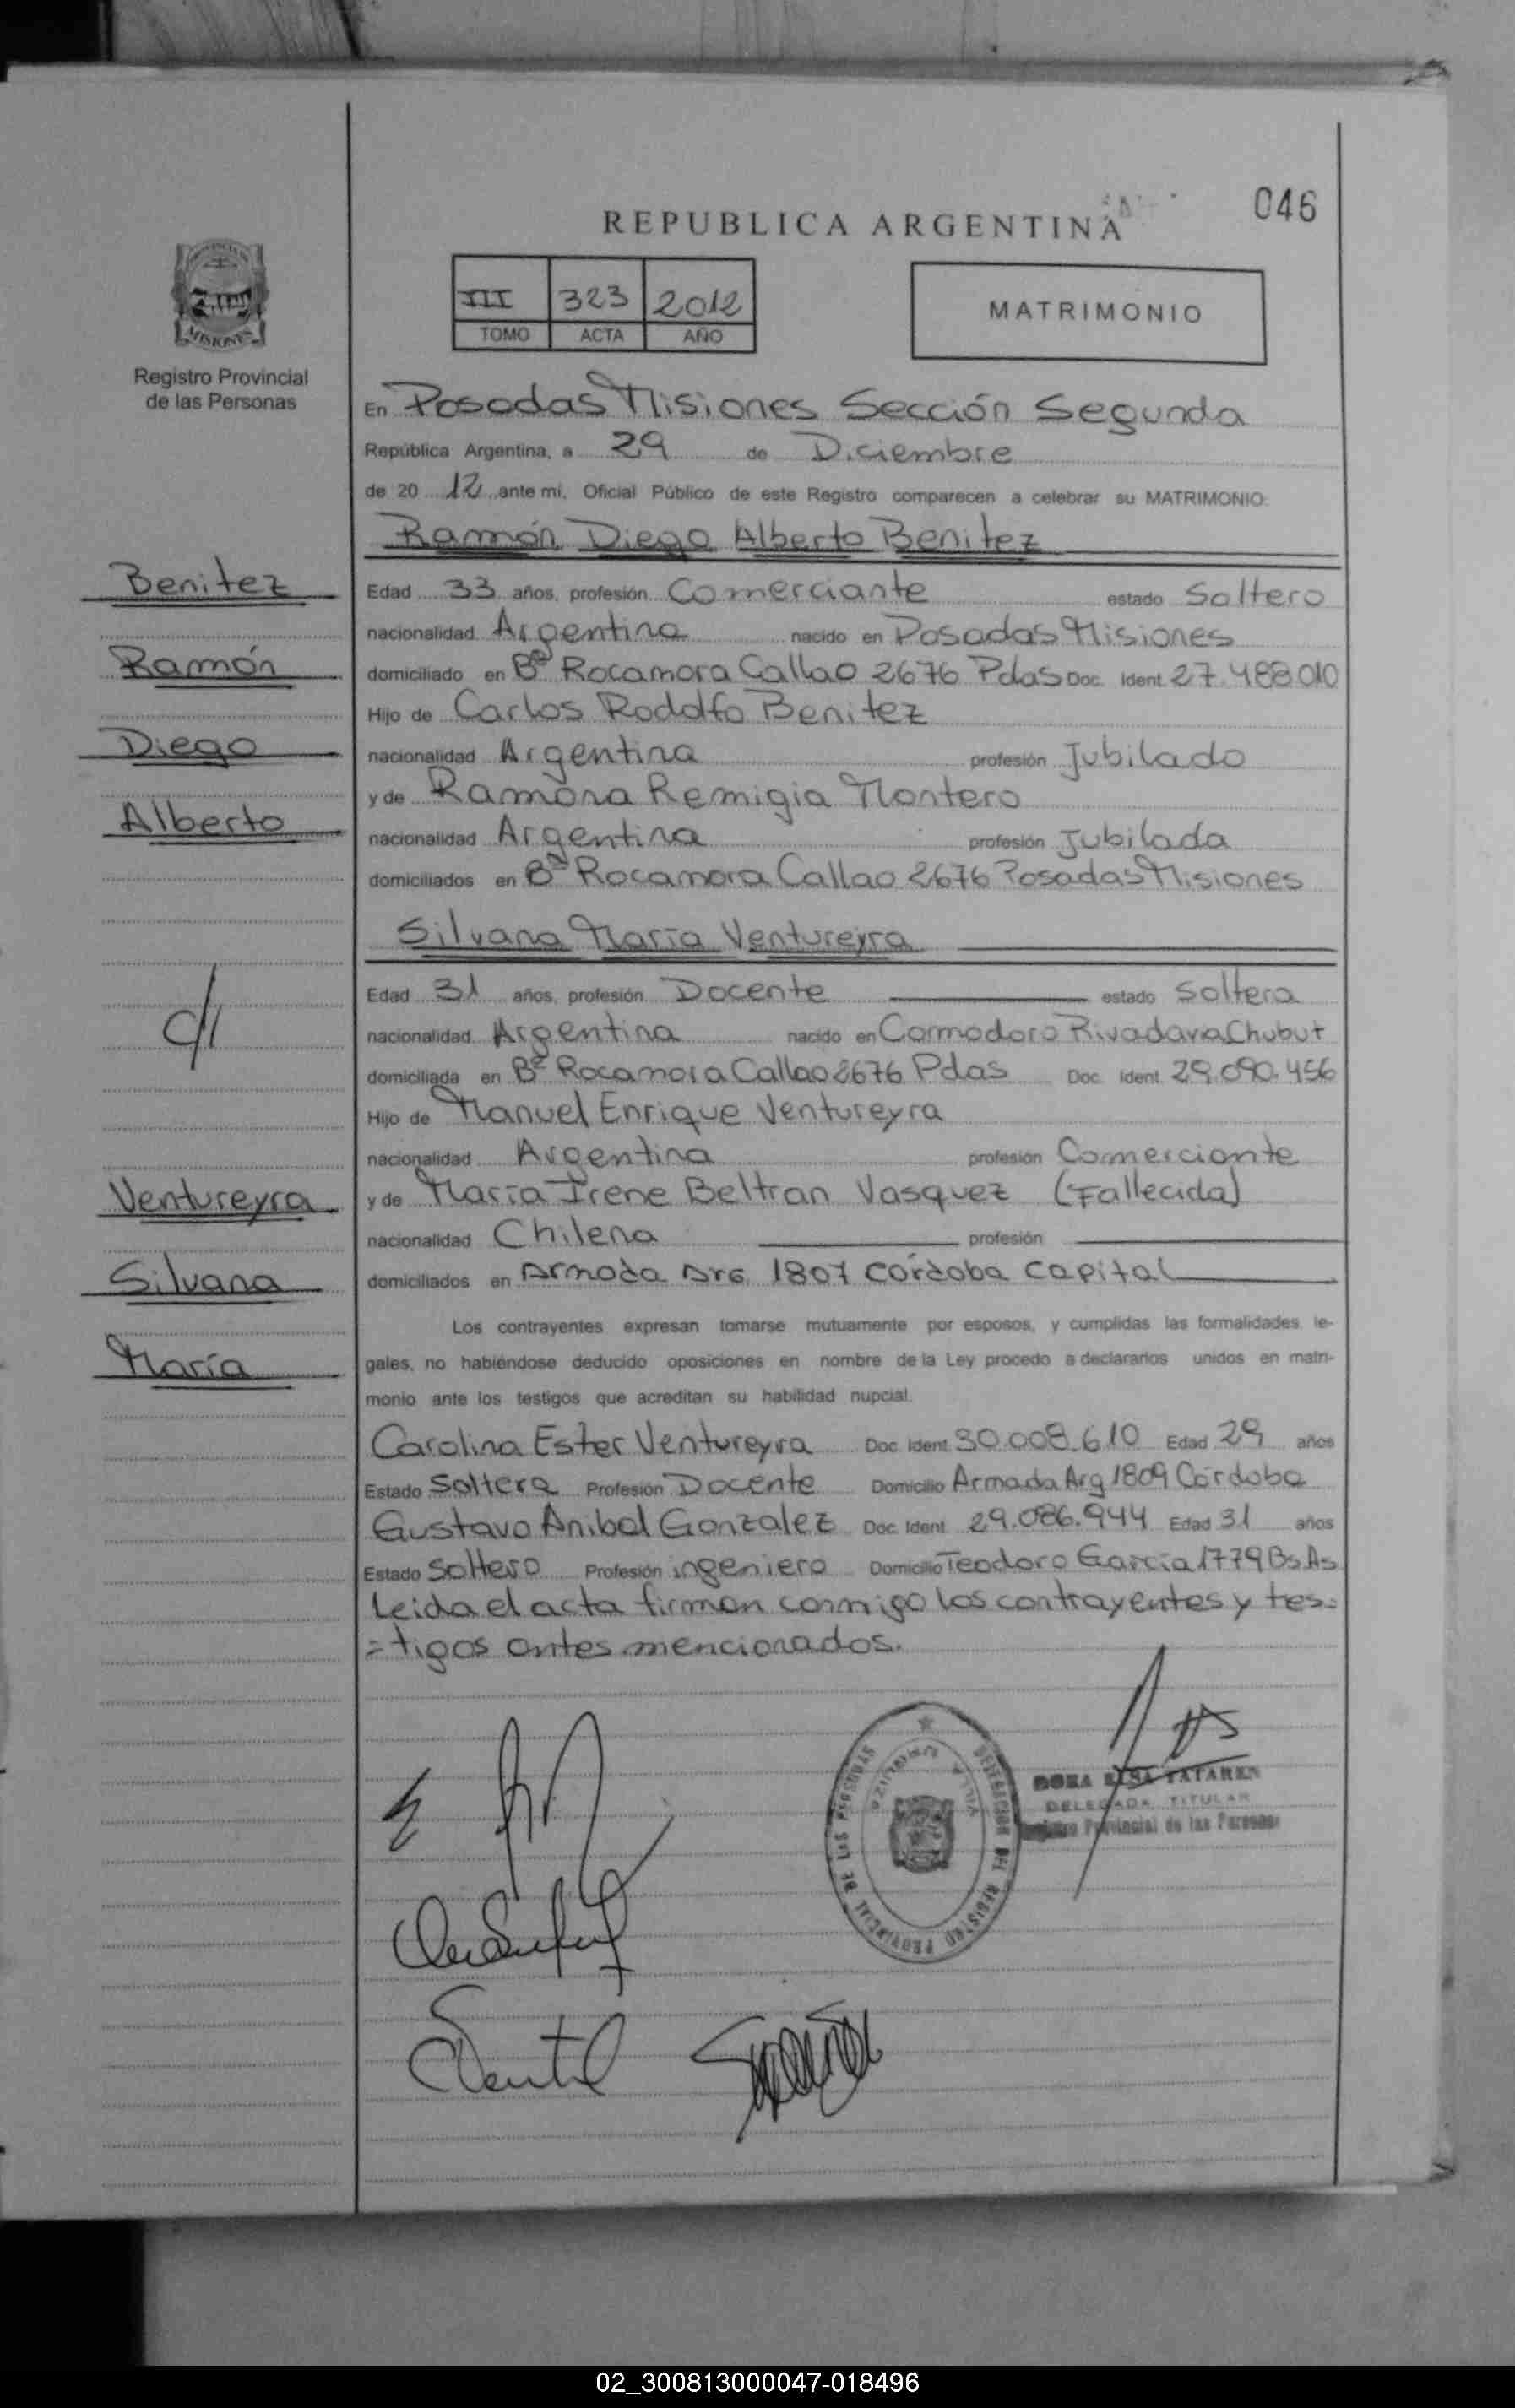 046
REPUBLICA ARGENTINA
III 323 2012
TOMO ACTA AÑO
MATRIMONIO
MISIONES
Registro Provincial
de las Personas
En Posadas Misiones Sección Segunda
República Argentina, a 29 de Diciembre
de 20 12 ante mi, Oficial Público de este Registro comparecen a celebrar su MATRIMONIO:
Ramón Diego Alberto Benitez
Benitez
Ramón
Diego
Alberto
Edad 33 años, profesión Comerciante estado Soltero
nacionalidad Argentina nacido en Posadas Misiones
domiciliado en Bº Rocamora Callao 2676 Pdas Doc. Ident. 27.488.010
Hijo de Carlos Rodolfo Benitez
nacionalidad Argentina profesión Jubilado
y de Ramona Remigia Montero
nacionalidad Argentina profesión Jubilada
domiciliados en Bº Rocamora Callao 2676 Posadas Misiones
Silvana María Ventureyra
Edad 31 años, profesión Docente estado Soltera
nacionalidad Argentina nacido en Comodoro Rivadavia Chubut
domiciliada en Bº Rocamora Callao 2676 Pdas Doc. Ident. 29.090.456
Hijo de Manuel Enrique Ventureyra
nacionalidad Argentina profesión Comerciante
y de María Irene Beltran Vasquez (Fallecida)
nacionalidad Chilena profesión
domiciliados en Armada Arg. 1807 Córdoba Capital
Ventureyra
Silvana
María
Los contrayentes expresan tomarse mutuamente por esposos, y cumplidas las formalidades le-
gales, no habiéndose deducido oposiciones en nombre de la Ley procedo a declararlos unidos en matri-
monio ante los testigos que acreditan su habilidad nupcial.
Carolina Ester Ventureyra Doc. Ident. 30.008.610 Edad 29 años
Estado Soltera Profesión Docente Domicilio Armada Arg 1809 Córdoba
Gustavo Anibal Gonzalez Doc. Ident. 29.086.944 Edad 31 años
Estado Soltero Profesión ingeniero Domicilio Teodoro García 1779 Bs.As
Leida el acta firman conmigo los contrayentes y tes=
=tigos antes mencionados.
DELEGACION DEL REGISTRO PROVINCIAL DE LAS PERSONAS
DORA ELSA TATAREN
DELEGADA TITULAR
Registro Provincial de las Personas
02_300813000047-018496